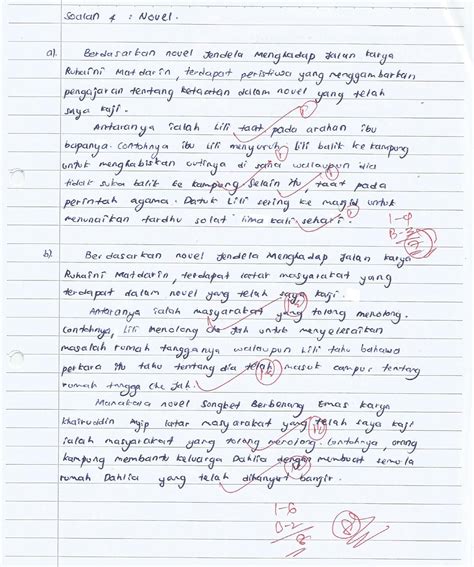 Soalan 4 : Novel.
a). Berdasarkan novel Jendela Menghadap Jalan karya
Ruhaini Matdarin, terdapat peristiwa yang menggambarkan
pengajaran tentang ketaatan dalam novel yang telah
saya kaji.
Antaranya ialah Lili taat pada arahan ibu
bapanya. Contohnya ibu Lili menyuruh Lili balik ke kampung
untuk menghabiskan cutinya di sana walaupun dia
tidak suka balik ke kampung. Selain itu, taat pada
perintah agama. Datuk Lili sering ke masjid untuk
menunaikan fardhu solat lima kali sehari.
I-4
B-3
7
b). Berdasarkan novel Jendela Menghadap Jalan karya
Ruhaini Matdarin, terdapat latar masyarakat yang
terdapat dalam novel yang telah saya kaji.
Antaranya ialah masyarakat yang tolong menolong.
Contohnya, Lili menolong Che Jah untuk menyelesaikan
masalah rumah tangganya walaupun Lili tahu bahawa
perkara itu tahu tentang dia telah masuk campur tentang
rumah tangga Che Jah.
Manakala novel Songket Berbenang Emas karya
Khairuddin Ayip latar masyarakat yang telah saya kaji
ialah masyarakat yang tolong menolong. Contohnya, orang
kampung membantu keluarga Dahlia dengan membuat semula
rumah Dahlia yang telah dihanyut banjir.
I-6
B-2
8
8